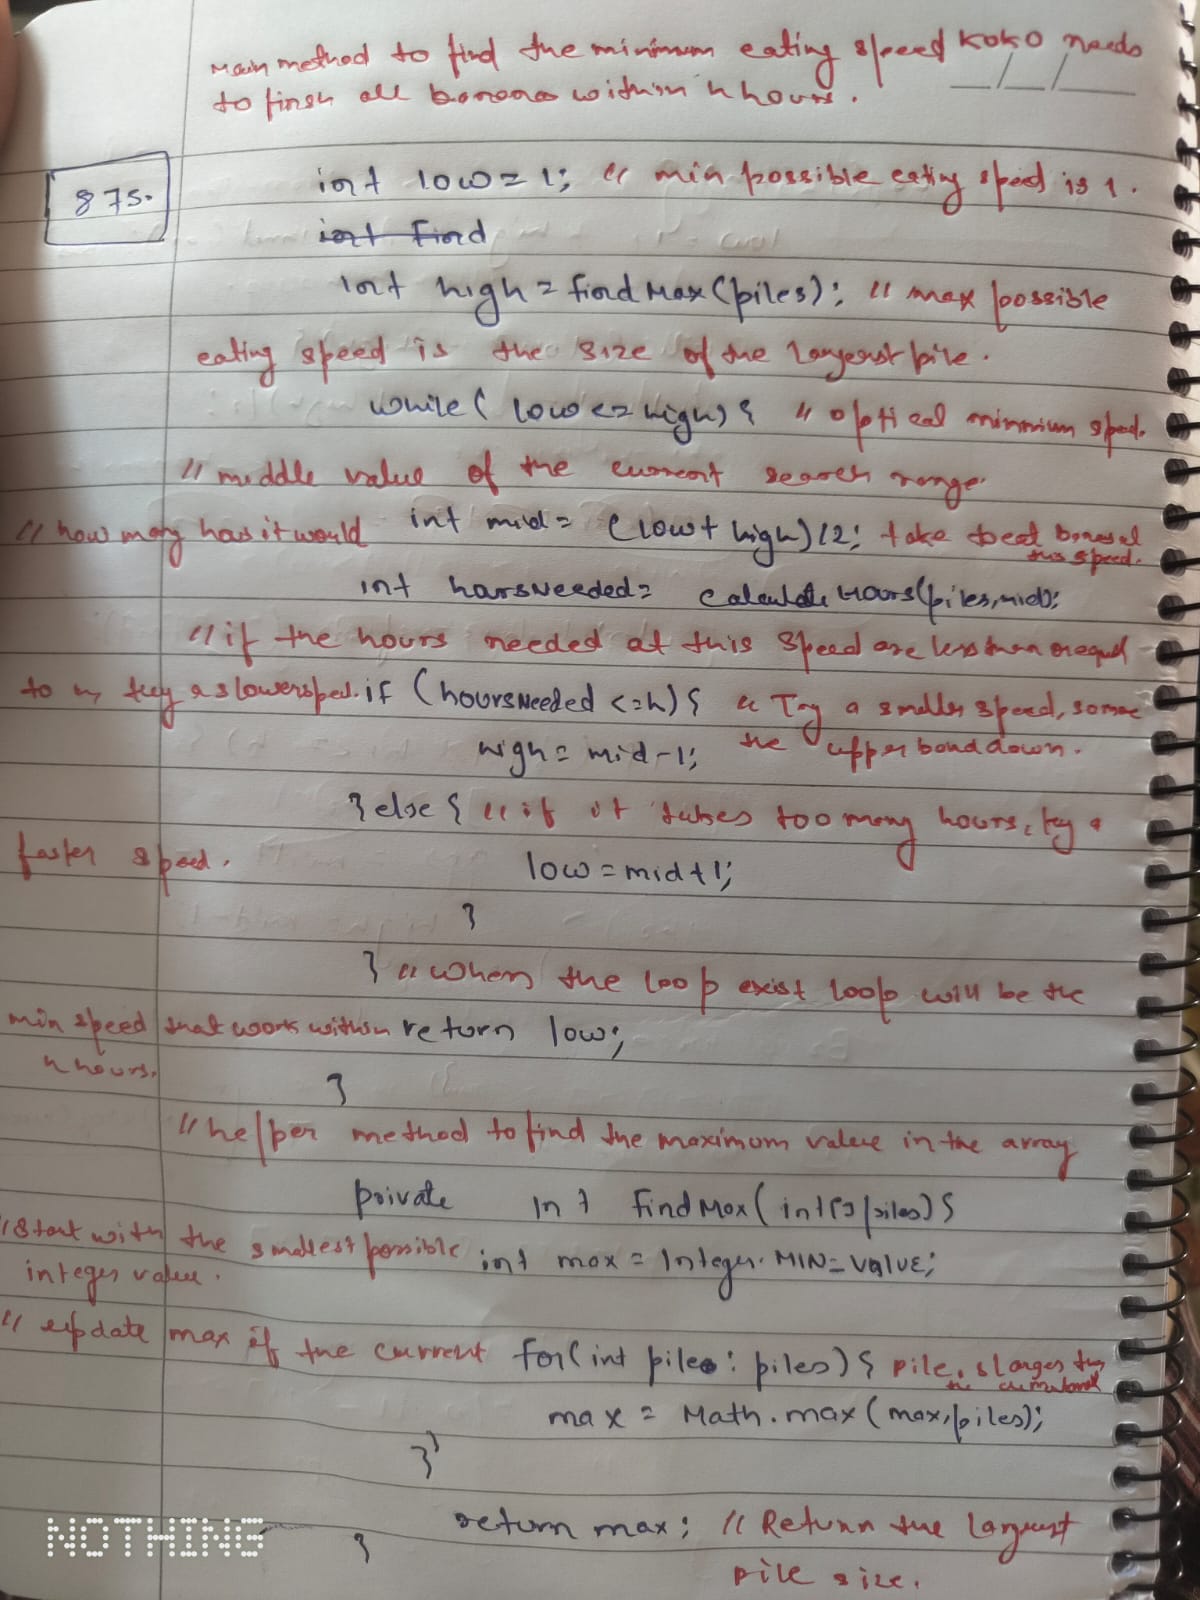 Main method to find the minimum eating speed KOKO needs
to finsh all bananas within h hours.
875.
int low = 1; // min possible eating speed is 1.
int find
int high = findMax(piles); // max possible
eating speed is the size of the largerst pile.
while( low <= high) { // optical minmium speed.
// middle value of the current search range.
// how many hours it would int mid = (low + high)/2; take to eat bananas at
this speed.
int harsNeeded = calculate Hours(piles,mid);
// if the hours needed at this speed are less than or equal
to h, try a slower sped. if (hoursNeeded <= h) { // Try a smaller speed, so move
high = mid - 1; the upper bond down.
} else { // if it takes too many hours, try a
faster speed. low = mid + 1;
}
} // when the loop exist loop will be the
min speed that work within return low;
h hours.
}
// helper method to find the maximum value in the array
private int findMax( int[] piles) {
// Start with the smallest possible int max = Integer. MIN=VALUE;
integer value.
// update max if the current for( int pile : piles) { pile is larger than
the
max = Math.max (max, piles);
}
return max; // Return the largest
}
pile size.
NOTHING